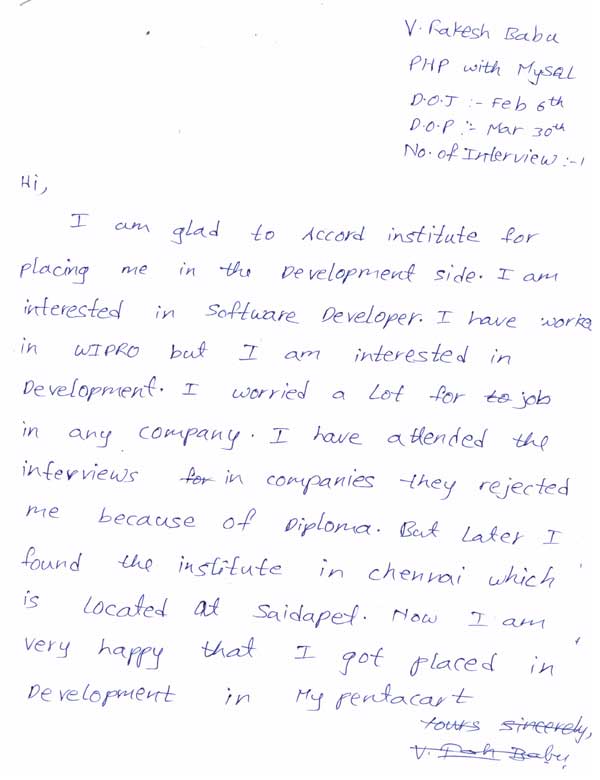 V. Rakesh Babu
PHP with MySQL
D.O.J :- Feb 6th
D.O.P :- Mar 30th
No. of Interview :- 1
Hi,
I am glad to Accord institute for
placing me in the Development side. I am
interested in Software Developer. I have worke
in WIPRO but I am interested in
Development. I worried a Lot for to job
in any company. I have attended the
interviews for in companies they rejected
me because of Diploma. But Later I
found the institute in chennai which
is Located at Saidapet. Now I am
very happy that I got placed in
Development in My pentacart
yours sincerely,
V. Babu